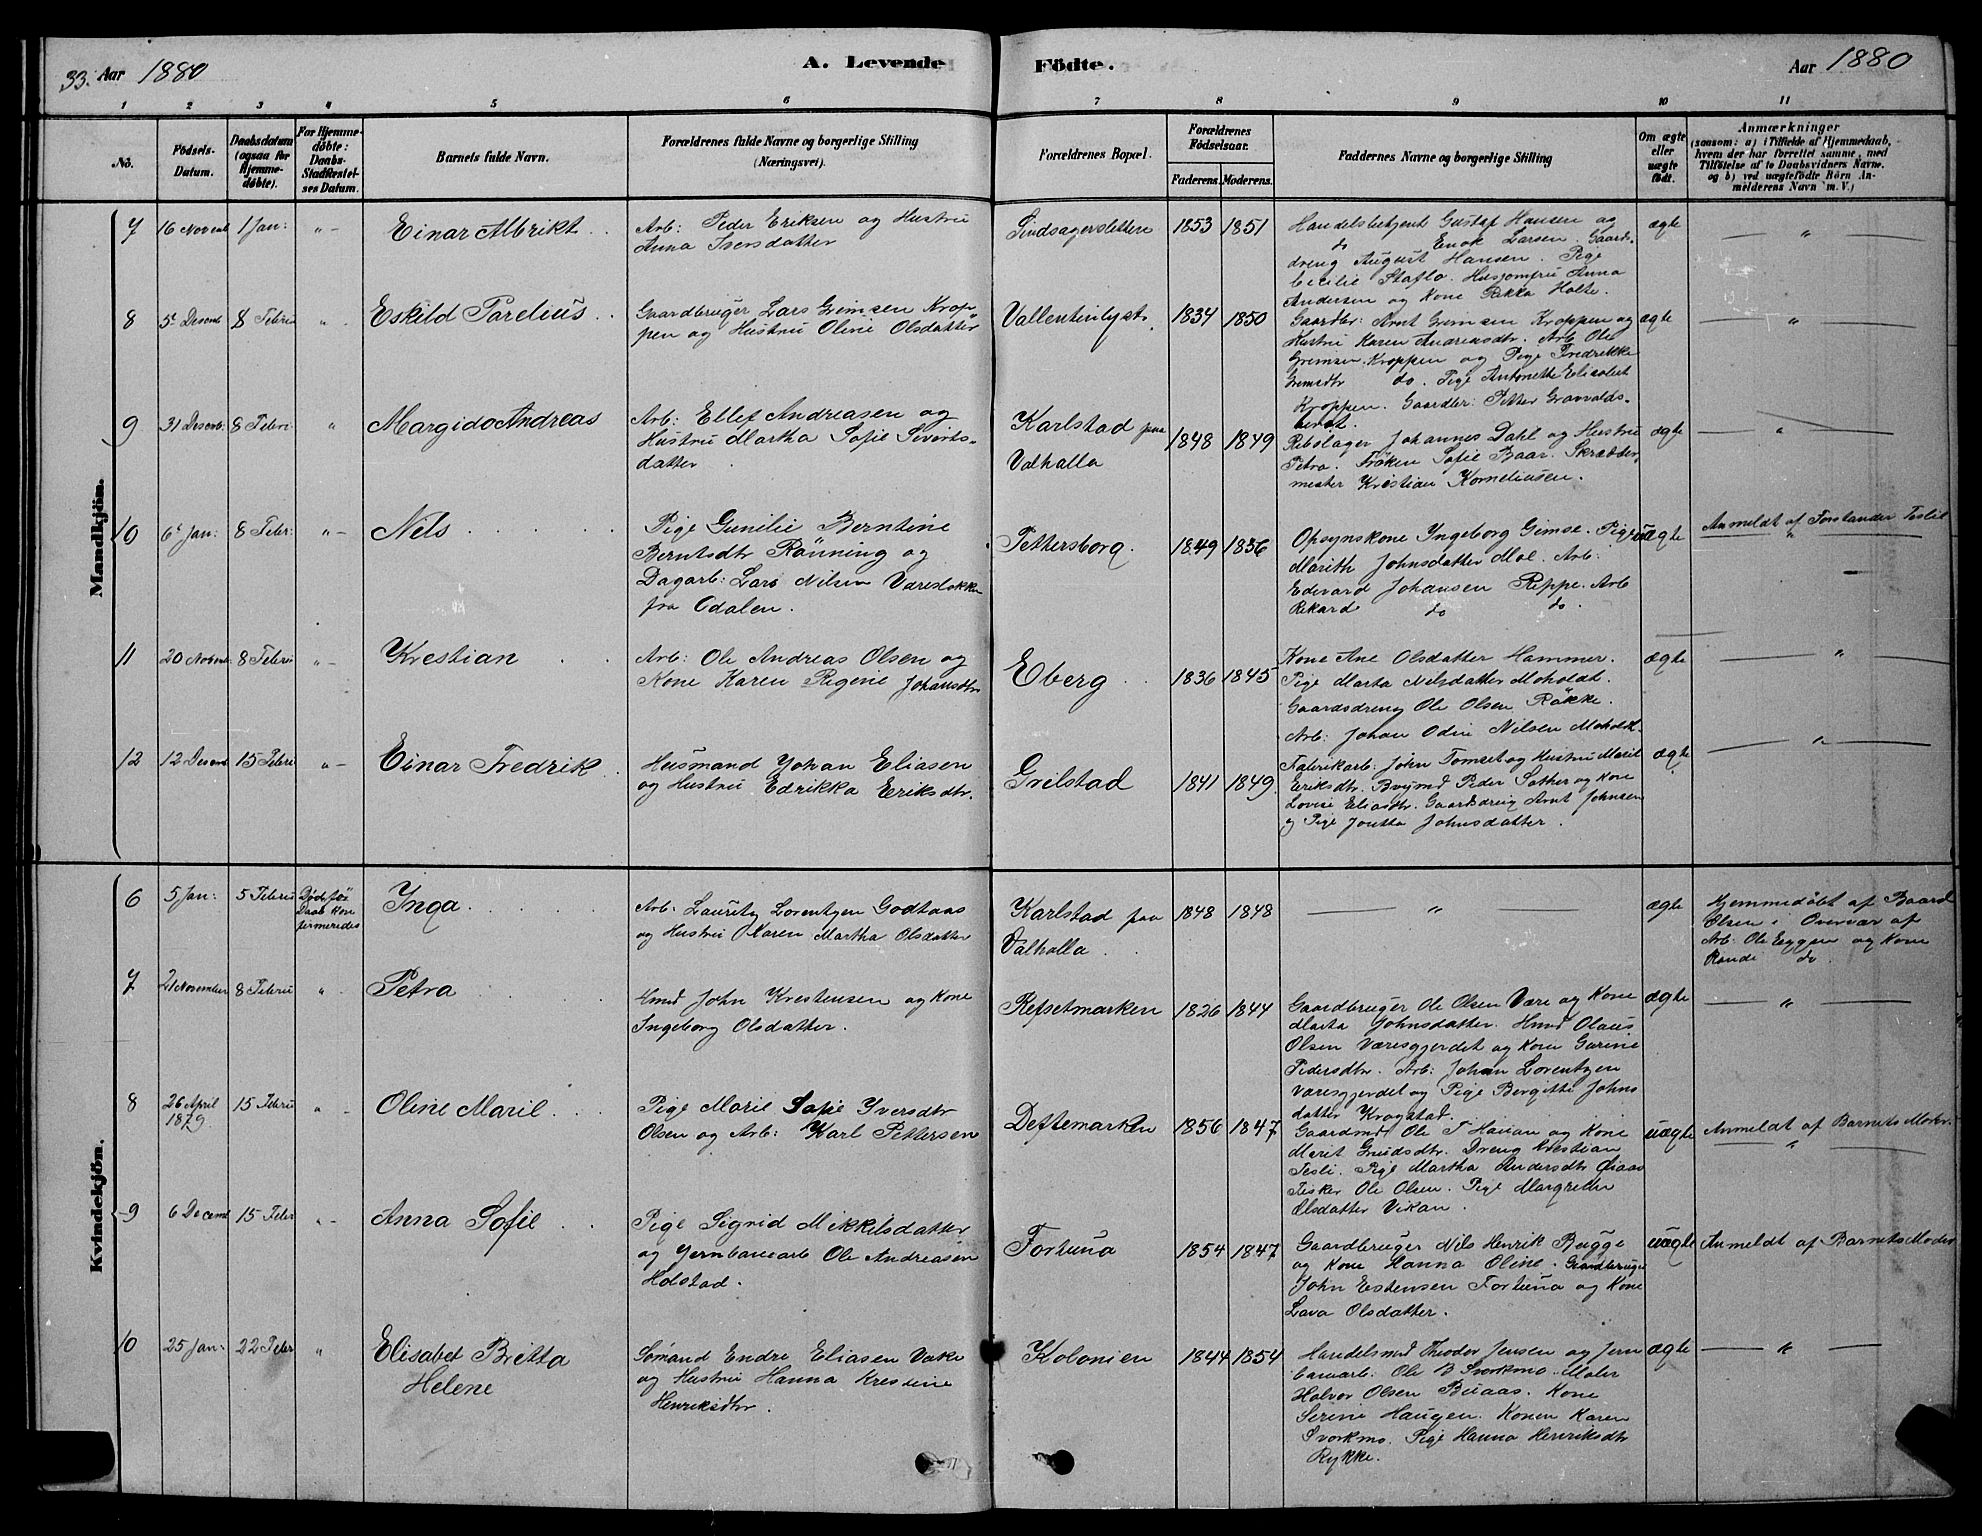 33. Aar 1880
A. Levende Födte.
Aar 1880
1 2 3 4 5 6 7 8 9 10 11
No.
Födsels-Datum.
Daabsdatum (ogsaa for Hjemme-døbte).
For Hjemme-døbte: Daabs-Stadfæstel-ses Datum.
Barnets fulde Navn.
Forældrenes fulde Navne og borgerlige Stilling (Næringsvei).
Forældrenes Bopæl.
Forældrenes Födselsaar.
Faderens. Moderens.
Faddernes Navne og borgerlige Stilling
Om ægte eller uægte født.
Anmærkninger
(saasom: a) i Tilfælde af Hjemmedaab,
hvem der har forrettet samme, med
Tilföielse af to Daabsvidners Navne.
og b) ved uægtefödte Börn An-
melderens Navn m. V.)
Mandkjön.
7 16 Novemb 1 Jan: " Einar Albrikt
Arb: Peder Eriksen og Hustru
Anna Iversdatter
1853 1851
Handelsbetjent Gustaf Hansen og
do Enok Larsen Gaards-
dreng August Hansen. Pige
Cecilie Staflo. Husjomfru Anna
Andersen og Kone Rikka Holte.
ægte "
8 5 Desemb 8 Febru " Eskild Parelius
Gaardbruger Lars Grimsen Krop-
pen og Hustru Oline Olsdatter
Vallentinlyst 1834 1850
Gaardbr: Arnt Grimsen Kroppen og
Hustru Karen Andreasdtr. Arb Ole
Gremsen Kroppen og Pige Fredrikke
Gremsdtr do. Pige Antonette Elisabet
Kroppen. Gaardbr: Petter Granvolds-
ægte "
9 31 Desemb: 8 Febru: " Margido Andreas
Arb: Ellef Andreasen og
Hustru Martha Sofie Siverts-
datter
Karlstad paa
Valhalla
1848 1849
Rebslager Johannes Dahl og Hustru
Petra. Frøken Sofie Baar. Skrædder
mester Kristian Korneliusen.
ægte "
10 6 Jan: 8 Febr: " Nels
Pige Gunilie Berntine
Berntsdtr Rönning og
Dagarb: Lars Nilsen
fra Odalen.
Pettersborg. 1849 1836
Opsynskone Ingeborg Gimse. Pige
Marith Johnsdatter Moe. Arb:
Edevard Johansen Reppe. Arb
Rikard do do.
uægte
Anmeldt af Forstander Teslie
"
11 20 Novemb: 8 Febru " Krestian
Arb: Ole Andreas Olsen og
Kone Karen Regine Johansdtr
Eberg 1836 1845
Kone Ane Olsdatter Hammer.
Pige Marta Nelsdatter Moholdt.
Gaardsdreng Ole Olsen Räkke.
Arb: Johan Odin Nilsen Moholdt.
ægte "
12 12 Desemb 15 Febru " Einar Fredrik
Husmand Johan Eliasen
og Hustru Edrikka Eriksdtr.
Grilstad 1841 1849.
Fabrikarb: John Tomset og Hustru Marit
Eriksdtr. Bygmd Peder Sather og Kone
Lovise Eliasdtr. Gaardsdreng Arnt Johnsen
og Pige Jonetta Johnsdatter.
ægte "
Kvindekjön.
6 5 Jan: 5 Febru Døde før
Daab kon
fermeredes
Inga
Arb: Lauritz Lorentzen Godtaas
og Hustru Karen Martha Olsdatter
Karlstad paa
Valhalla
1848 1848
"
ægte
Hjemmedøbt af Baard
Olsen i Overvær af
Arb: Ole Eggen og Kone
Randi do.
7 21 November 8 Febru " Petra
Hmd John Krestensen og Kone
Ingeborg Olsdatter.
Refsetmarken 1826 1844
Gaardbruger Ole Olsen Være og Kone
Marta Johnsdatter. Hmd Olaus
Olsen Væresgjerdet og Kone Gurine
Pedersdtr. Arb: Johan Lorentzen
Væresgjerdet og Pige Bergitte Johns
datter Krogstad.
ægte "
8 26 April
1879.
15 Febru " Oline Maril
Pige Marie Sofie Yversdtr
Olsen og Arb: Karl Pettersen
Deftemarken 1856 1847
Gaardmd Ole T Hauan og Kone
Marit Gundsdtr. Dreng Krestian
Tesli. Pige Martha Andersdtr Øiaas
Fisker Ole Olsen. Pige Margrethe
Olsdatter Vikan.
uægte
Anmeldt af Barnets Moder.
"
9 6 Decemb 15 Febr " Anna Sofie
Pige Sigrid Mikkelsdatter
og Jernbanearb Ole Andreasen
Holstad.
Fortuna 1854 1847
Gaardbruger Nils Henrik Bugge
og Kone Hanna Oline. Gaardbruger
John Estensen Fortuna og Kone
Lava Olsdatter.
uægte
Anmeldt af Barnets Moder
10 25 Jan: 22 Febr " Elisabet Britta
Helene
Sømand Endre Eliasen
og Hustru Hanna Krestine
Henriksdtr.
Kolonien 1844 1854
Handelsmd Theodor Jensen og Jern
banearb: Ole B Svorkmo. Maler
Halvor Olsen Buaas. Kone
Serine Haugen. Konen Karen
Svorkmo. Pige Hanna Henriksdtr
Rykke.
ægte "